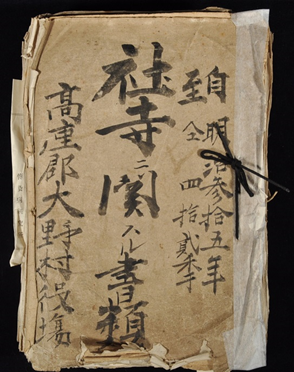 自明治参拾五年
至仝四拾貳年
社寺ニ関スル書類
高座郡大野村役場